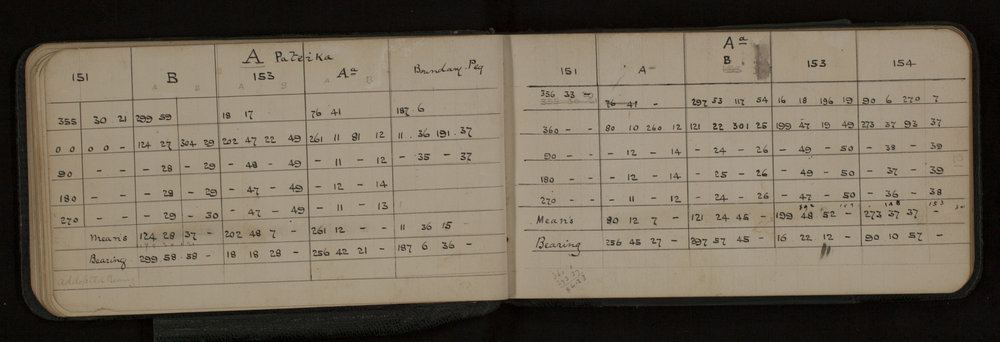 A Patzika
151 B 153 Aa Boundary Peg
A B A B A B
355 30 21 299 59 18 17 76 41 187 6
0 0 0 0 - 124 27 304 29 202 47 22 49 261 11 81 12 11 36 191 37
90 - - - 28 - 29 - 48 - 49 - 11 - 12 - 35 - 37
180 - - - 28 - 29 - 47 - 49 - 12 - 14
270 - - - 29 - 30 - 47 - 49 - 11 - 13
Means 124 28 37 - 202 48 7 - 261 12 - - 11 36 15
Bearing 299 58 58 - 18 18 28 - 256 42 21 - 187 6 36 -
151 A Aa B 153 154
356 33 76 41 - 297 53 117 54 16 18 196 19 90 6 270 7
360 - - 80 10 260 12 121 22 301 25 199 47 19 49 273 37 93 37
90 - - - 12 - 14 - 24 - 26 - 49 - 50 - 38 - 39
180 - - - 12 - 14 - 25 - 26 - 49 - 50 - 37 - 39
270 - - - 11 - 12 - 24 - 26 - 47 - 50 - 36 - 38
Means 80 12 7 - 121 24 45 - 199 48 52 - 273 37 37 -
Bearing 256 45 27 - 297 57 45 - 16 22 12 - 90 10 57 -